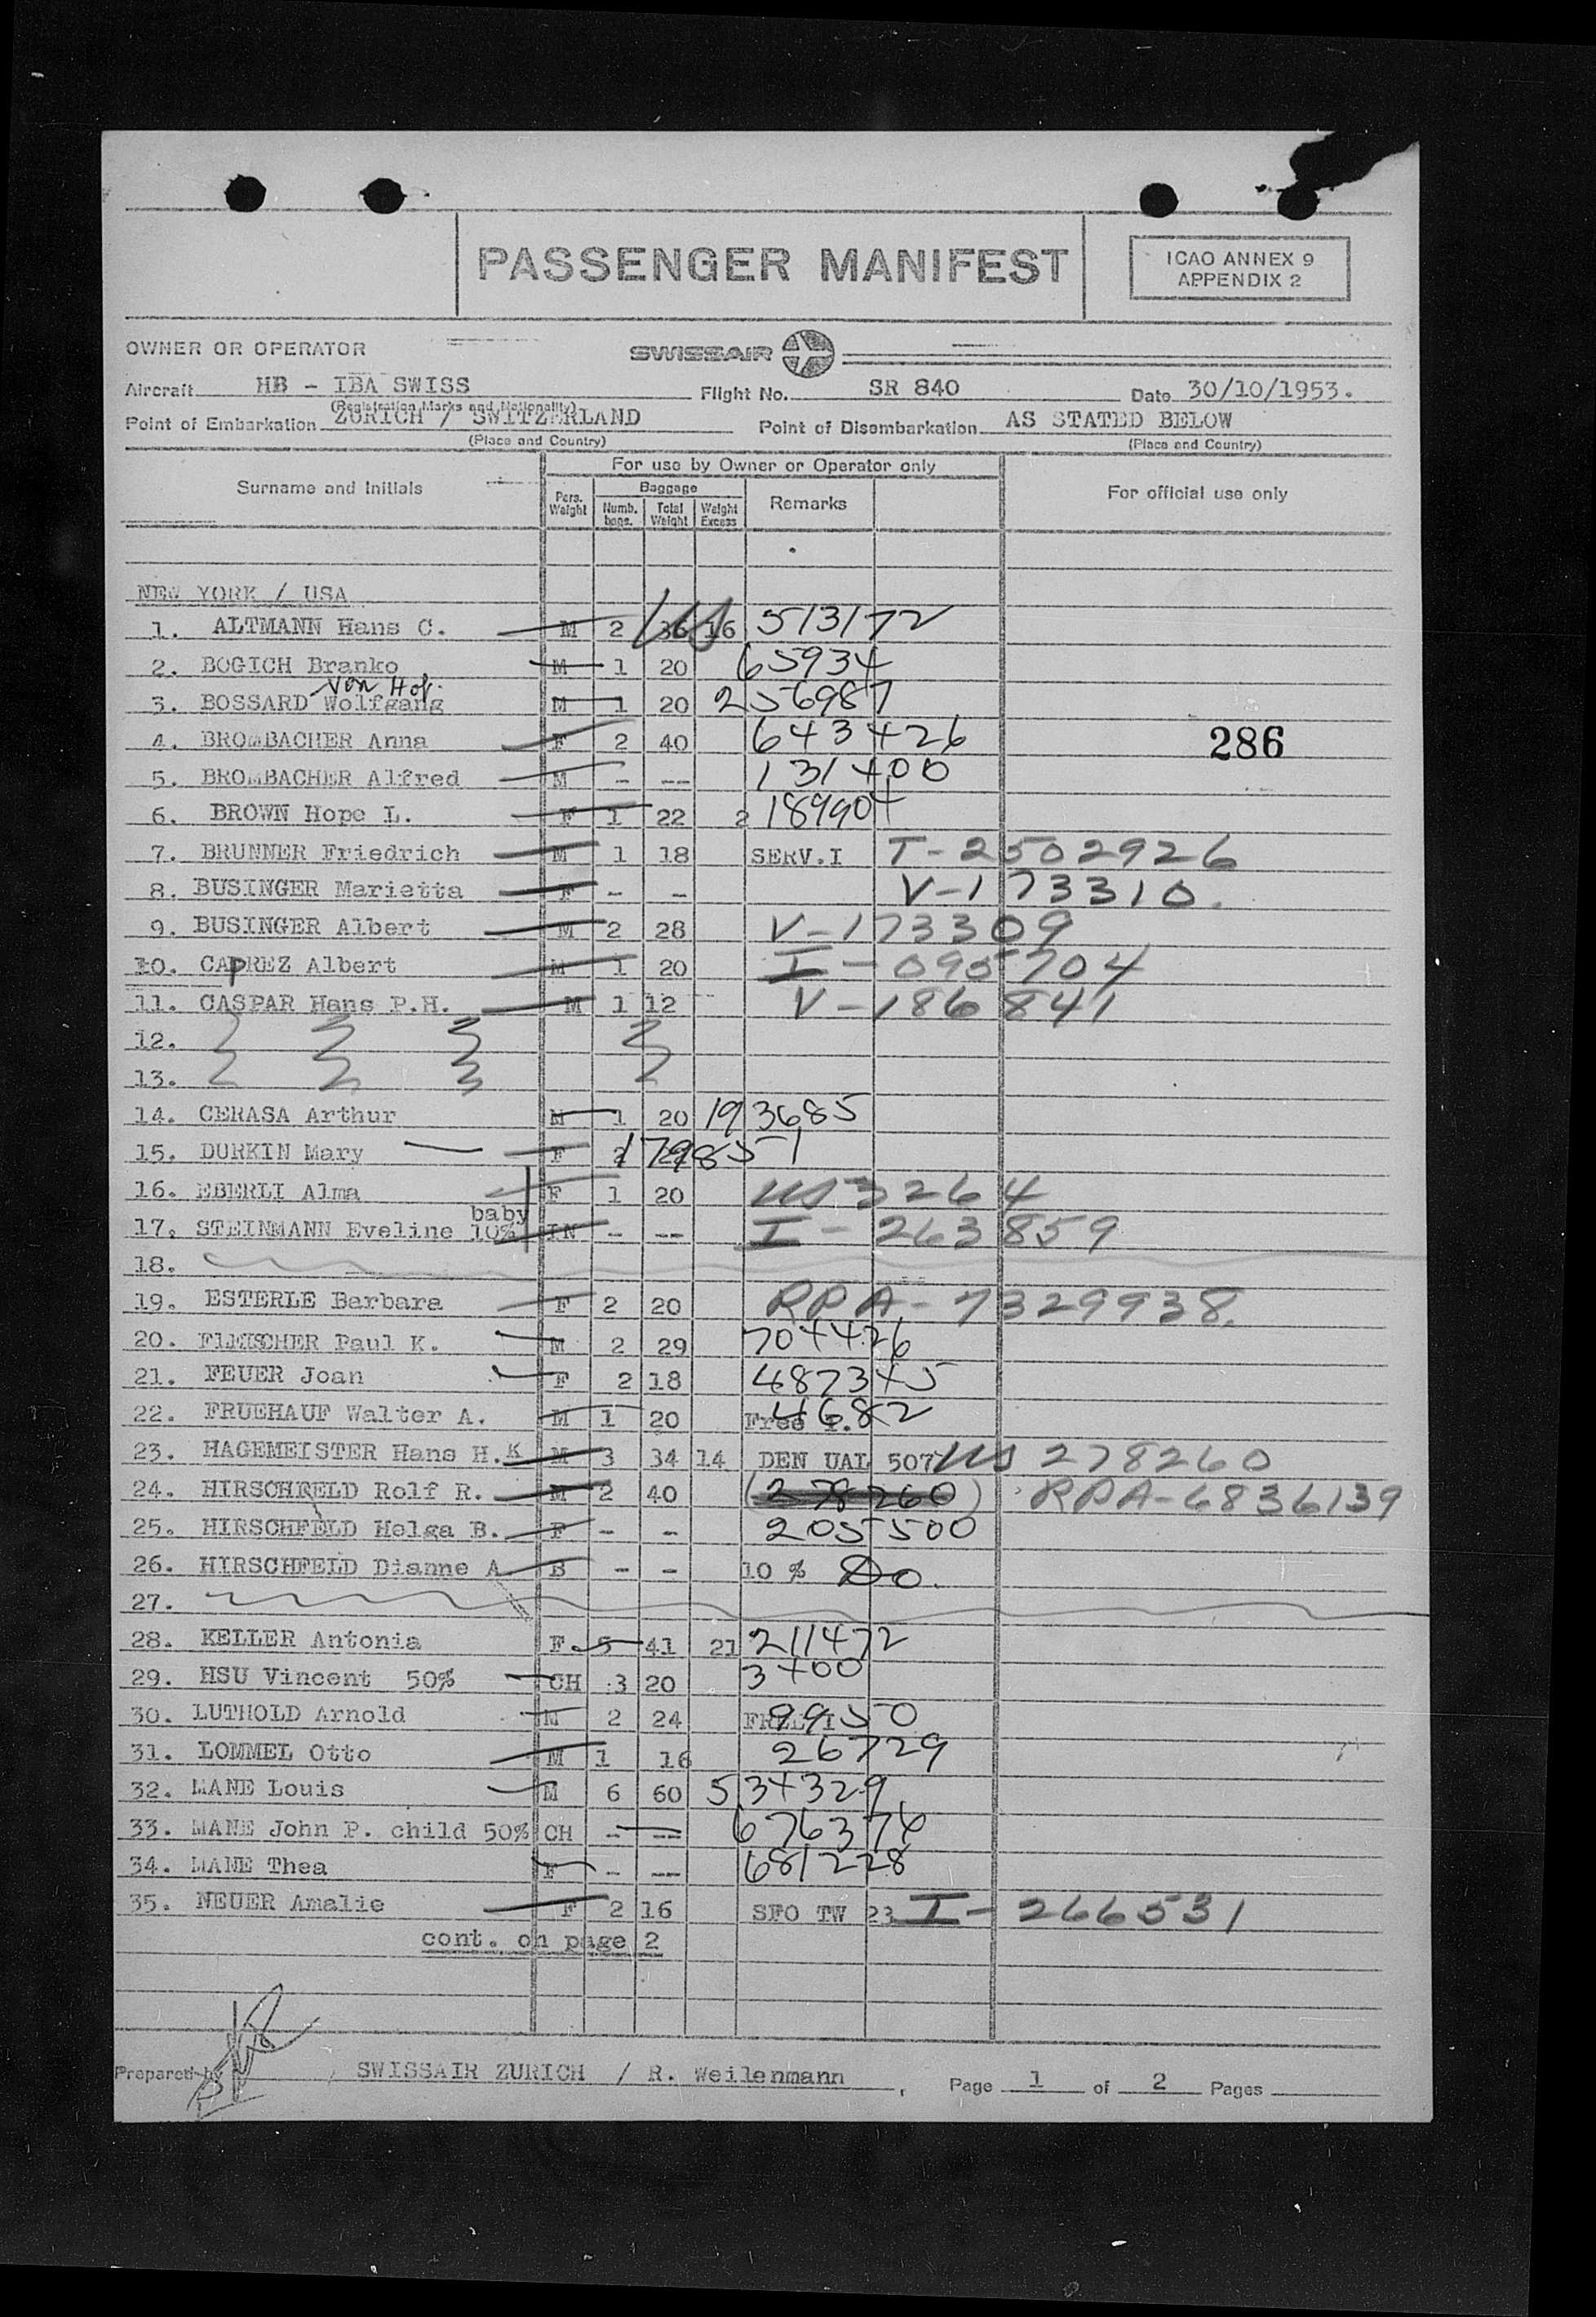 PASSENGER MANIFEST
ICAO ANNEX 9
APPENDIX 2
OWNER OR OPERATOR SWISSAIR
Aircraft HB - IBA SWISS Flight No. SR 840 Date 30/10/1953.
(Registration Marks and Nationality)
Point of Embarkation ZURICH / SWITZERLAND Point of Disembarkation AS STATED BELOW
(Place and Country) (Place and Country)
For use by Owner or Operator only
Surname and Initials Pers. Weight Baggage Numb. bags. Total Weight Weight Excess Remarks For official use only
NEW YORK / USA
1. ALTMANN Hans C. M 2 36 16 US 513172
2. BOGICH Branko M 1 20 65934
von Hof.
3. BOSSARD Wolfgang M 1 20 256987
4. BROMBACHER Anna F 2 40 643426
286
5. BROMBACHER Alfred M - -- 131400
6. BROWN Hope L. F 1 22 2 189904
7. BRUNNER Friedrich M 1 18 SERV.I T-2502926
8. BUSINGER Marietta F - - V-173310.
9. BUSINGER Albert M 2 28 V-173309
10. CAPREZ Albert M 1 20 I-095704
11. CASPAR Hans P.H. M 1 12 V-186841
12.
13.
14. CERASA Arthur M 1 20 193685
15. DURKIN Mary F 179851
16. EBERLI Alma F 1 20 US 3264
baby
17. STEINMANN Eveline 10% IN - -- I-263859
18.
19. ESTERLE Barbara F 2 20 RPA-7329938.
20. FLEISCHER Paul K. M 2 29 704426
21. FEUER Joan F 2 18 487345
22. FRUEHAUF Walter A. M 1 20 Free 4682
23. HAGEMEISTER Hans H.K M 3 34 14 DEN UAL 507 US 278260
24. HIRSCHFELD Rolf R. M 2 40 (278260) RPA-6836139
25. HIRSCHFELD Helga B. F - - 205500
26. HIRSCHFELD Dianne A B - - 10 % Do.
27.
28. KELLER Antonia F. 5 41 21 211472
29. HSU Vincent 50% CH 3 20 3400
30. LUTHOLD Arnold M 2 24 FREE I 9950
31. LOMMEL Otto M 1 16 26729
32. MANE Louis M 6 60 534329
33. MANE John P. child 50% CH - -- 676374
34. MANE Thea F - -- 681228
35. NEUER Amalie F 2 16 SFO TW 23 I-266531
cont. on page 2
Prepared by SWISSAIR ZURICH / R. Weilenmann, Page 1 of 2 Pages